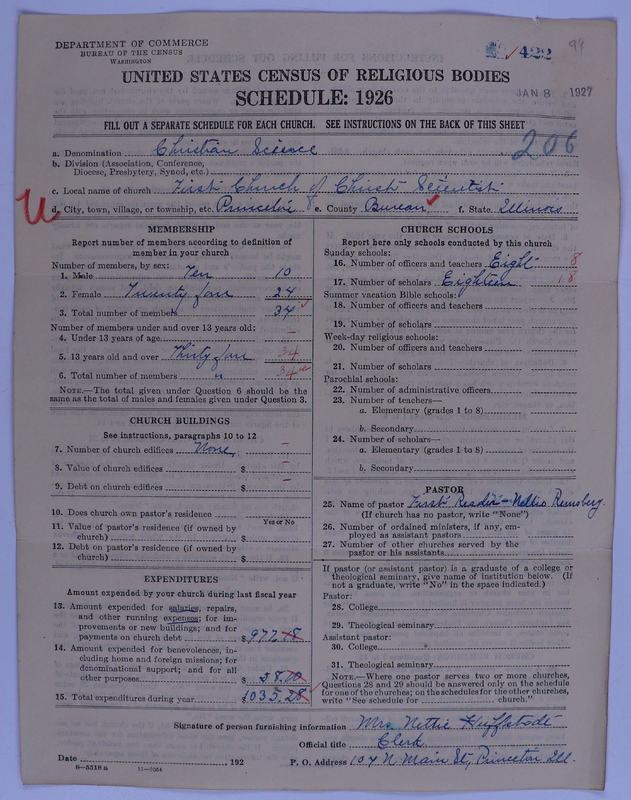 DEPARTMENT OF COMMERCE
BUREAU OF THE CENSUS
WASHINGTON
422
99
UNITED STATES CENSUS OF RELIGIOUS BODIES
SCHEDULE: 1926
JAN 8 1927
FILL OUT A SEPARATE SCHEDULE FOR EACH CHURCH. SEE INSTRUCTIONS ON THE BACK OF THIS SHEET
206
a. Denomination Christian Science
b. Division (Association, Conference,
Diocese, Presbytery, Synod, etc.)
c. Local name of church First Church of Christ Scientist
d. City, town, village, or township, etc. Princeton e. County Bureau f. State Illinois
MEMBERSHIP
Report number of members according to definition of
member in your church
Number of members, by sex:
1. Male Ten 10
2. Female Twenty four 24
3. Total number of members 34
Number of members under and over 13 years old:
4. Under 13 years of age –
5. 13 years old and over Thirty four 34
6. Total number of members " 34
NOTE.—The total given under Question 6 should be
the same as the total of males and females given under Question 3.
CHURCH BUILDINGS
See instructions, paragraphs 10 to 12
7. Number of church edifices None –
8. Value of church edifices $ –
9. Debt on church edifices $ –
10. Does church own pastor's residence
Yes or No
11. Value of pastor's residence (if owned by
church) $
12. Debt on pastor's residence (if owned by
church) $
EXPENDITURES
Amount expended by your church during last fiscal year
13. Amount expended for salaries, repairs,
and other running expenses; for im-
provements or new buildings; and for
payments on church debt $977.18
14. Amount expended for benevolences, in-
cluding home and foreign missions; for
denominational support; and for all
other purposes $ 58.10
15. Total expenditures during year $1035.28
CHURCH SCHOOLS
Report here only schools conducted by this church
Sunday schools:
16. Number of officers and teachers Eight 8
17. Number of scholars Eighteen 18
Summer vacation Bible schools:
18. Number of officers and teachers
19. Number of scholars
Week-day religious schools:
20. Number of officers and teachers
21. Number of scholars
Parochial schools:
22. Number of administrative officers
23. Number of teachers—
a. Elementary (grades 1 to 8)
b. Secondary
24. Number of scholars—
a. Elementary (grades 1 to 8)
b. Secondary
PASTOR
25. Name of pastor First Reader – Nellie Remsberg.
(If church has no pastor, write "None")
26. Number of ordained ministers, if any, em-
ployed as assistant pastors
27. Number of other churches served by the
pastor or his assistants
If pastor (or assistant pastor) is a graduate of a college or
theological seminary, give name of institution below. (If
not a graduate, write "No" in the space indicated.)
Pastor:
28. College
29. Theological seminary
Assistant pastor:
30. College
31. Theological seminary
NOTE.—Where one pastor serves two or more churches,
Questions 28 and 29 should be answered only on the schedule
for one of the churches; on the schedules for the other churches,
write "See schedule for church."
Signature of person furnishing information Mrs. Nettie Huffstodt
Official title Clerk
Date , 192 P. O. Address 104 N. Main St, Princeton Ill.
8—5518a 11—9054